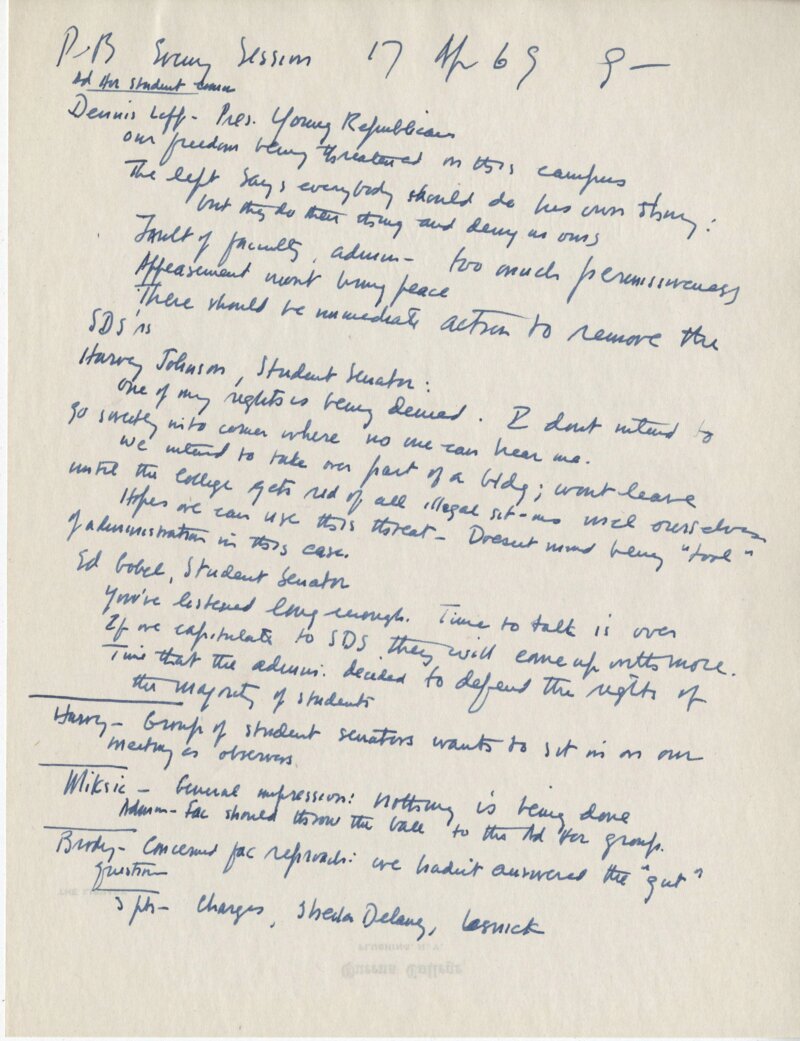 P-B Evening Session 17 Apr 69 9-
Ad Hoc Student Comm
Dennis Leff - Pres. Young Republicans
Our freedom being threatened on this campus
The left says everybody should do his own thing:
but they do their thing and deny us ours
Fault of faculty, admin - too much permissiveness
Appeasement wont bring peace
There should be immediate action to remove the
SDS'rs
Harvey Johnson, Student Senator:
One of my rights is being denied. I dont intend to
go sweetly into corner where no one can hear me.
We intend to take over part of a bldg; wont leave
until the College gets rid of all illegal sit-ins incl ourselves
Hopes we can use this threat - Doesnt mind being "tool"
of administration in this case.
Ed Gobel, Student Senator
You've listened long enough. Time to talk is over
If we capitulate to SDS they will come up with more.
Time that the admin. decided to defend the rights of
the majority of students
Harvey - Group of student senators wants to sit in on our
meeting as observers
Miksic - General impression: nothing is being done
Admin-fac should throw the ball to the Ad Hoc group.
Brody - Concerned fac reproach: we hadn't answered the "gut"
question
3 pts - Charges, Sheila Delany, Lesnick
FLUSHING, N.Y.
Queens College